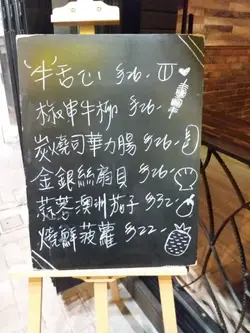 牛舌心 $26.-
椒串牛柳 $26.-
炭燒司華力腸 $26.-
金銀絲扇貝 $26.-
蒜蓉澳洲茄子 $32.-
燒鮮菠蘿 $22.-